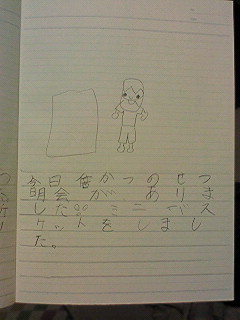 今日 かつのせつ
明会 が ありま
した ミニバス
ケットをしまし
た。